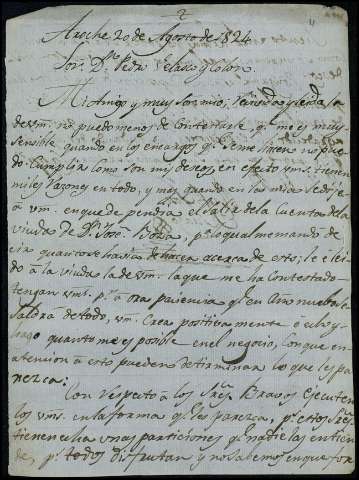 Aroche 20 de Agosto de 1824
Sor. Dn. Pedro Velasco y Colon
Mi Amigo y muy Sor. mio, recivida y leida la
de vm. no puedo menos de Contestarle q.e me es muy
sensible quando en los encargos q.e se me hacen no pue-
do Cumplir como son mis deseos, en efecto vms. tienen
miles razones en todo, y mas quando en las mias se dije
a vm. en que dependia el Saldo de la Cuenta de la
viuda de Dn. José p.r lo qual me mando de
cir quanto se hacia acerca de esto; le e lei
do á la viuda la de vm. la que me ha Contestado
tengan vms. p.r aora paciencia q.e en Año nuebo le
Saldra de todo, vm. Crea positivamente q.e
hago quanto me es posible en el negocio, Con que en
atencion á esto pueden determinar lo que les pa
rezca:
Con respecto á los Sres. Bravos Ejecuten
los vms. en la forma q.e les parezca, p.s estos Sres.
tienen echa unas particiones q.e nadie las entien
de, p.s todos disfrutan y no sabemos en que for